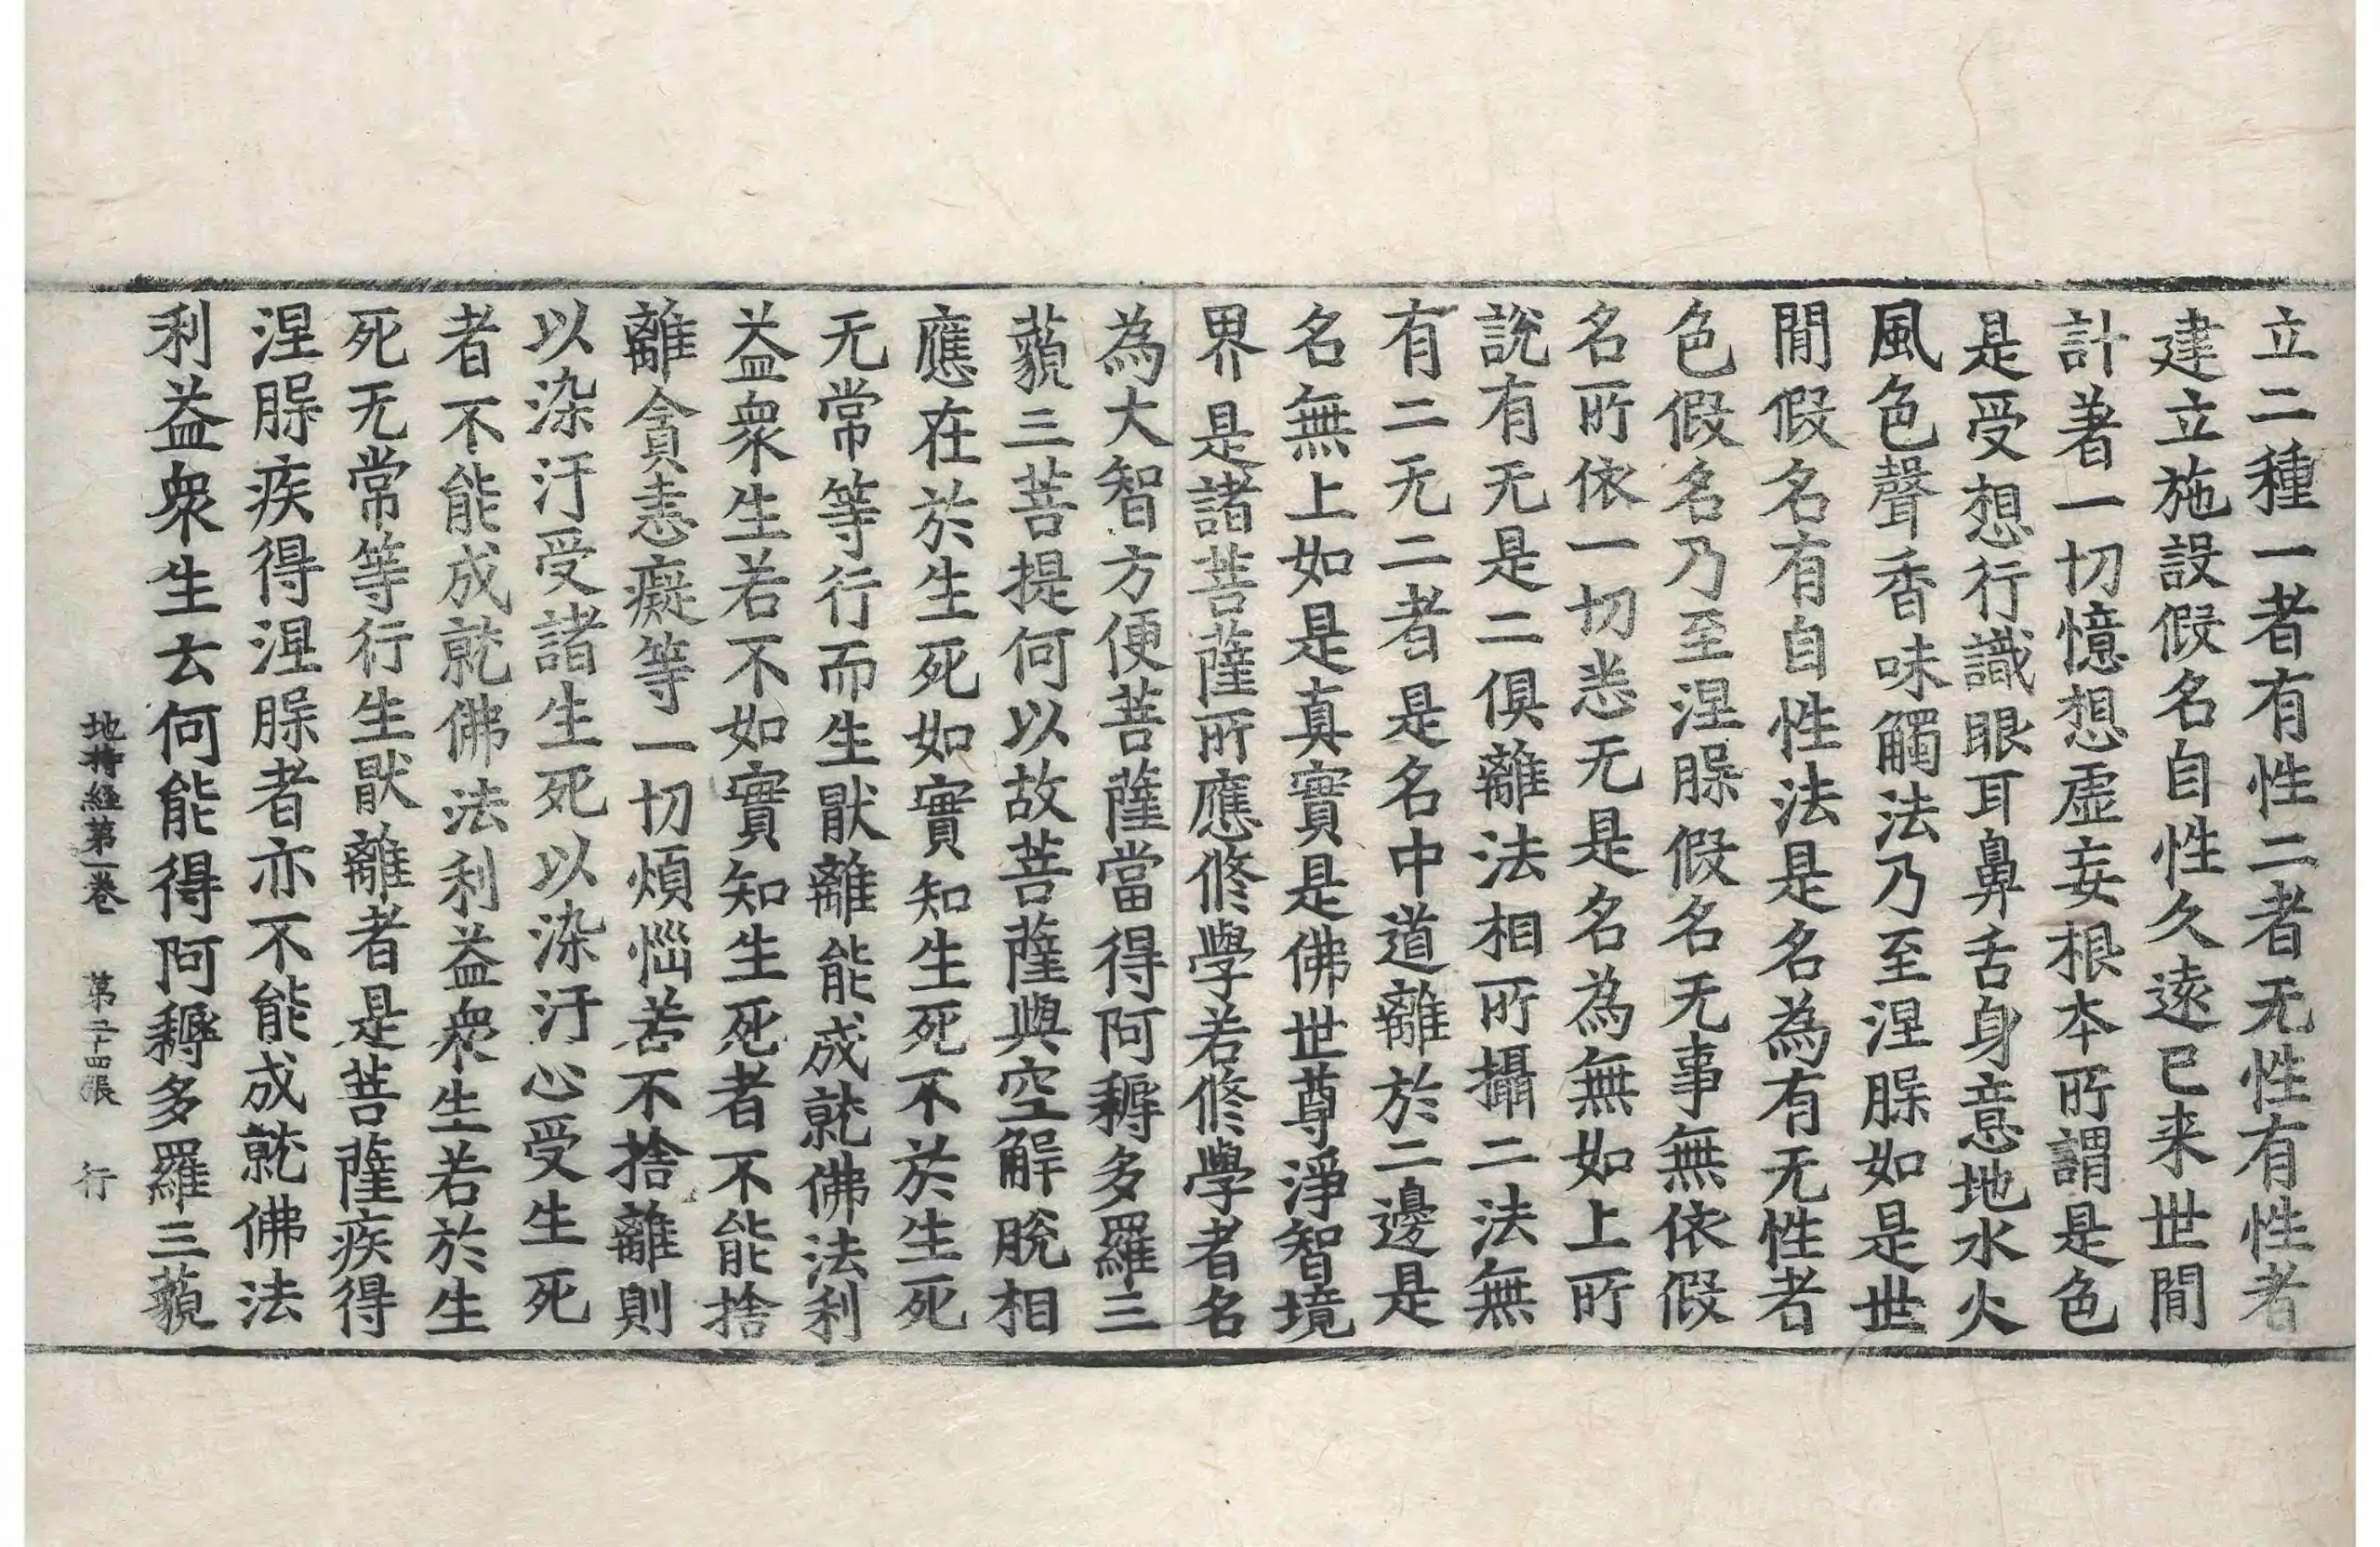 立二種一者有性二者无性有性者
建立施設假名自性久遠已来世閒
計著一切憶想虛妄根本所謂是色
是受想行識眼耳鼻舌身意地水火
風色聲香味觸法乃至涅槃如是世
閒假名有自性法是名為有无性者
色假名乃至涅槃假名无事無依假
名所依一切悉无是名為無如上所
說有无是二俱離法相所攝二法無
有二无二者是名中道離於二邊是
名無上如是真實是佛世尊淨智境
界是諸菩薩所應修學若修學者名
為大智方便菩薩當得阿耨多羅三
藐三菩提何以故菩薩與空解脫相
應在於生死如實知生死不於生死
无常等行而生猒離能成就佛法利
益衆生若不如實知生死者不能捨
離貪恚癡等一切煩惱若不捨離則
以染汙受諸生死以染汙心受生死
者不能成就佛法利益衆生若於生
死无常等行生猒離者是菩薩疾得
涅槃疾得涅槃者亦不能成就佛法
利益衆生云何能得阿耨多羅三藐
地持經第一卷 第二十四張 行